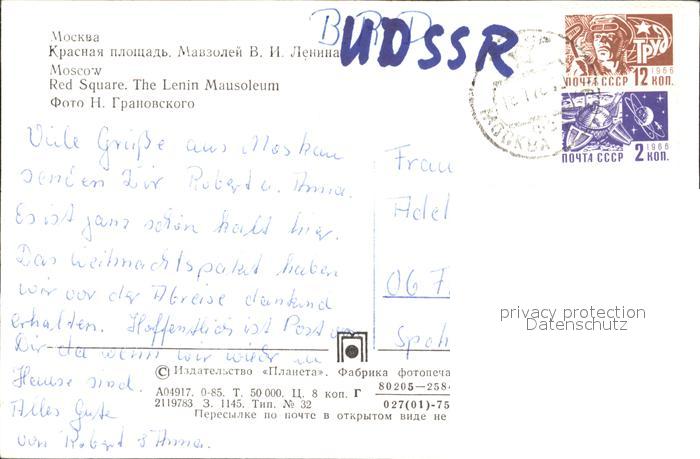 Москва
Красная площадь. Мавзолей В. И. Ленина
Moscow
Red Square. The Lenin Mausoleum
Фото Н. Грановского
BRD
UDSSR
ТРУД
1966
ПОЧТА СССР 12 КОП.
1966
ПОЧТА СССР 2 КОП.
МОСКВА
Viele Grüße aus Moskau
senden Dir Robert u. Anna.
Es ist ganz schön kalt hier.
Das Weihnachtspaket haben
wir vor der Abreise dankend
erhalten. Hoffentlich ist Post von
Dir da wenn wir wieder zu
Hause sind.
Alles Gute
von Robert & Anna.
Frau
Adel
06 F
Spoh
privacy protection
Datenschutz
© Издательство «Планета». Фабрика фотопеча
А04917. 0-85. Т. 50 000. Ц. 8 коп. Г 80205—258
2119783 З. 1145. Тип. № 32 027(01)-75
Пересылке по почте в открытом виде не